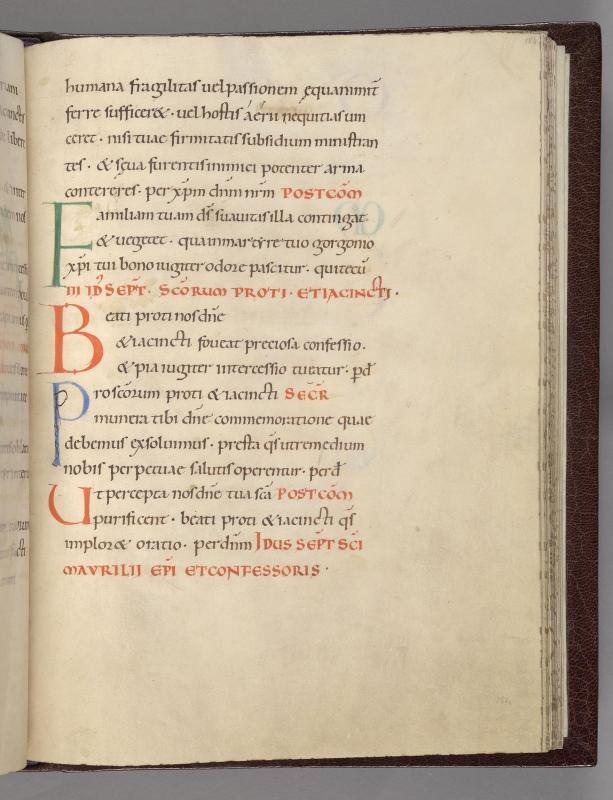 humana fragilitas uel passionem equanimit̄
ferre sufficer&· uel hostis aerii nequitias uin
ceret· nisi tuae firmitatis subsidium ministran
tes· & sęua furentis inimici potenter arma
contereres· per xp̄m dn̄m nr̄m POSTCOM̄
Familiam tuam d̄s suauitas illa contingat·
& ueget&· qua in martyre tuo gorgonio
xp̄i tui bono iugiter odore pascitur· qui tecū
III ID̄ SEPT̄· SC̄ORUM PROTI· ET IACINCTI·
Beati proti nos dn̄e
& iacincti foueat preciosa confessio·
& pia iugiter intercessio tueatur· p̄ d̄
Pro sc̄orum proti & iacincti SECR̄
munera tibi dn̄e commemoratione quae
debemus exsoluimus· presta q̄s ut remedium
nobis perpetuae salutis operentur· per d̄
Ut percepta nos dn̄e tua sc̄a POSTCOM̄
purificent· beati proti & iacincti q̄s
implor& oratio· per dn̄m IDUS SEPT SC̄I
MAVRILII EPI ET CONFESSORIS·